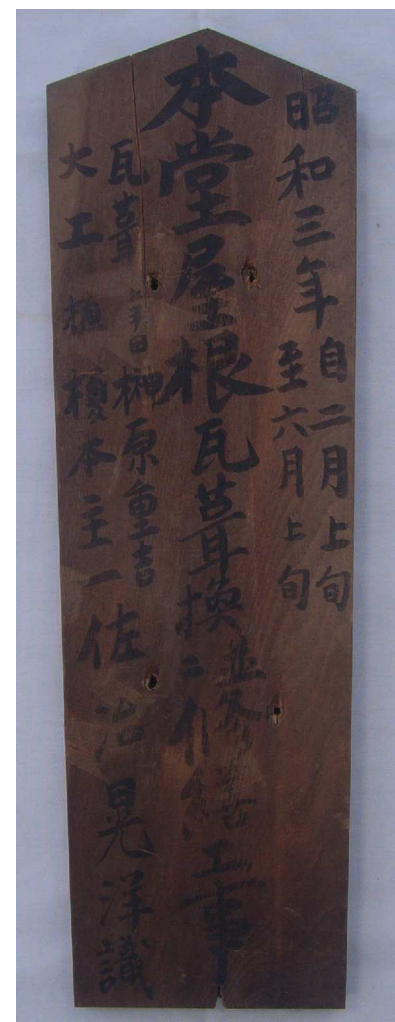 昭和三年
自二月上旬
至六月上旬
本堂屋根瓦葺換並二修繕工事
瓦葺
榊原重吉
大工
榎本主一
佐治晃洋識